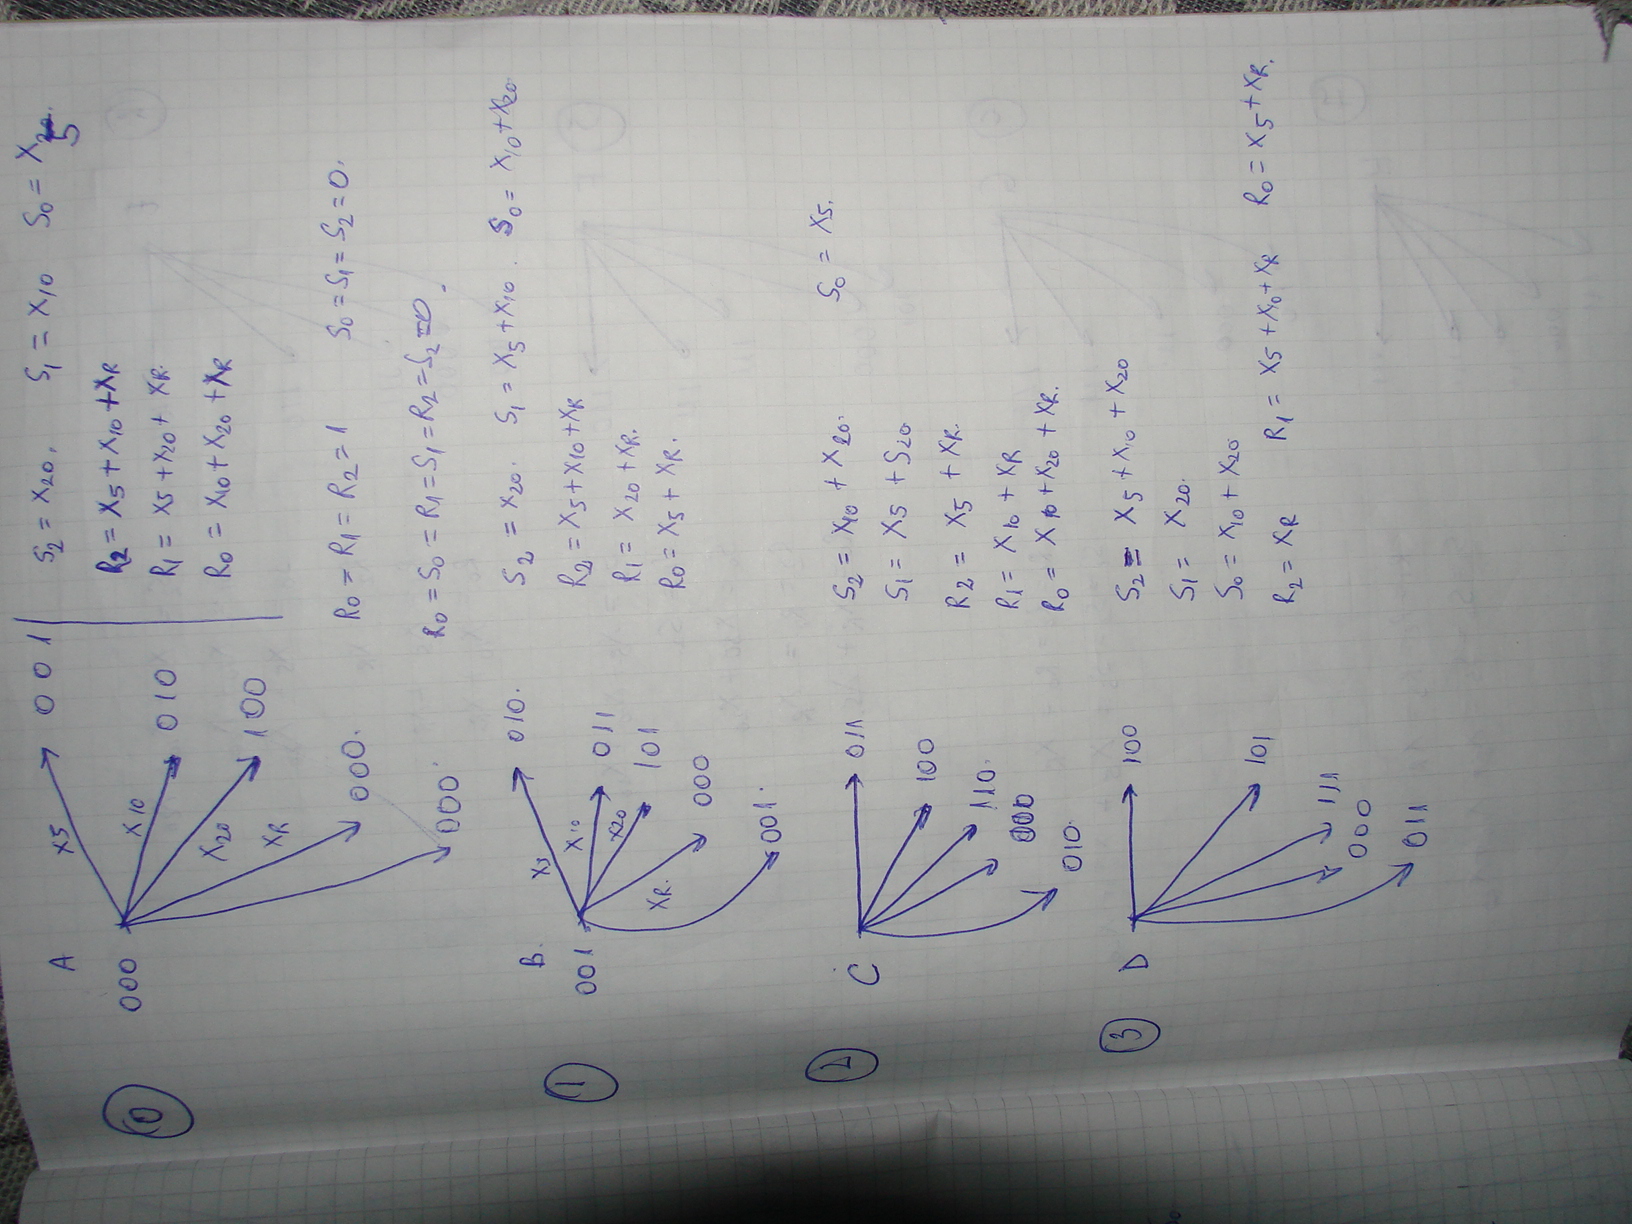 0
A
000
X5
001
X10
010
X20
100
XR
000.
000.
S2 = X20. S1 = X10 S0 = X5
R2 = X5 + X10 + XR
R1 = X5 + X20 + XR.
R0 = X10 + X20 + XR
R0 = R1 = R2 = 1 S0 = S1 = S2 = 0.
R0 = S0 = R1 = S1 = R2 = S2 = 0.
1
B.
001
X5
010.
X10
011
X20
101
XR.
000
001.
S2 = X20. S1 = X5 + X10. S0 = X10 + X20
R2 = X5 + X10 + XR
R1 = X20 + XR.
R0 = X5 + XR.
2
C
011
100
110.
000
010.
S2 = X10 + X20. S0 = X5.
S1 = X5 + S20
R2 = X5 + XR.
R1 = X10 + XR
R0 = X10 + X20 + XR.
3
D
100
101
111
000
011
S2 = X5 + X10 + X20
S1 = X20.
S0 = X10 + X20
R2 = XR R1 = X5 + X10 + XR R0 = X5 + XR.